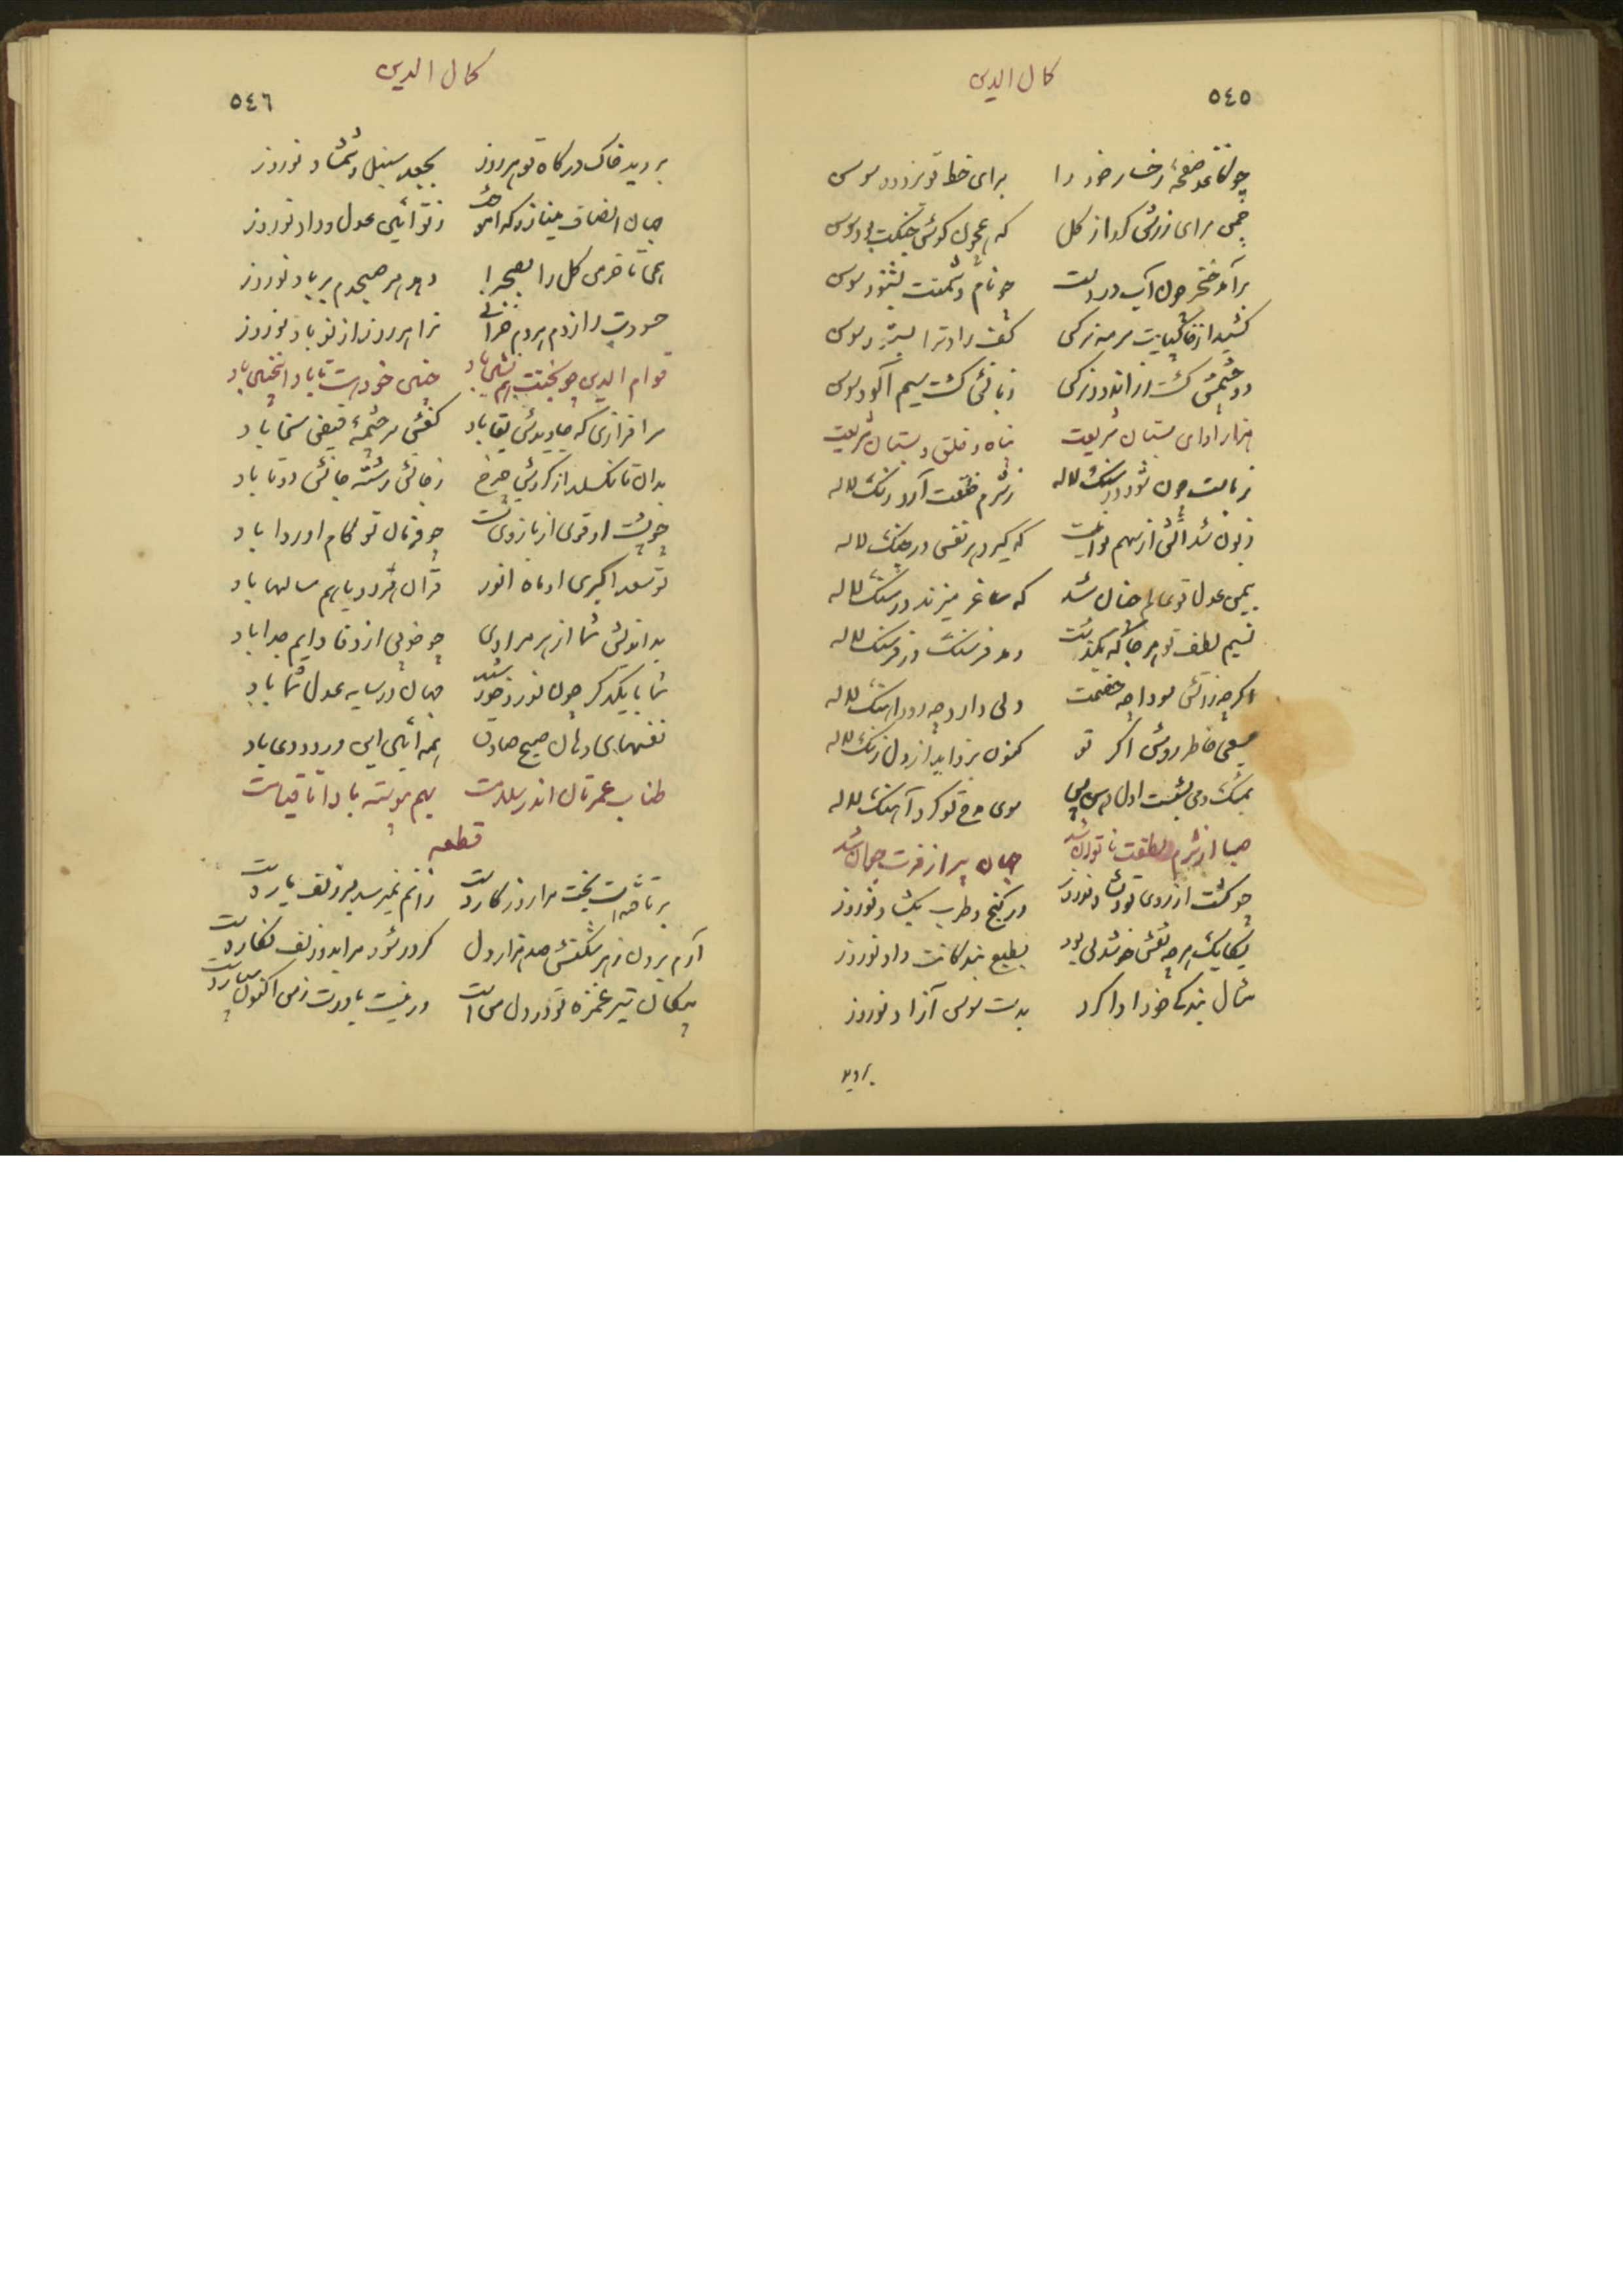 کمال الدین
٥٤٥
چو کاغذ صفحهٔ رخسار خود را برای خط تو بزدود سوسن
چمن برای زرش کرد از گل که همچون گوش جنگت بود سوسن
برآمد خنجر چون آب در دست چو نام دشمنت بشنود سوسن
کشید از خاکپایت سرمه نرگس کف راد ترا بستود سوسن
دو چشمش گشت زر اندود نرگس زبانش گشت سیم آلود سوسن
هزار آوای بستان شریعت پناه و خلق دبستان شریعت
زبانت چون شود در سنگ لاله ز شرم خلقت آرد رنگ لاله
زبون شد آتش از سهم تو که گیرد هر نفس در چنگ لاله
بیمن عدل تو عالم چنان شد که ساغر میزند در سنگ لاله
نسیم لطف تو هر جا که بگذشت دهد فرسنگ در فرسنگ لاله
اگر چه زآتش سودا چه خصمت ولی دارد چه دود آهنگ لاله
صبحی خاطر روشن اگر تو کنون بزداید از دل زنگ لاله
بیک دم بشکفت اول پس سوی مدح تو کرد آهنگ لاله
صبا از شرم لطفت ناتوان شد جهان پیر از فرت جوان شد
چو گشت از روی تو دلشاد نوروز در گنج و طرب بگشاد نوروز
یکایک هر چه نقش خوشدلی بود بطبع بندگانت داد نوروز
مثال بندگی خود ادا کرد بدست سوسن آزاد نوروز
بروید
کمال الدین
٥٤٦
بروید خاک درگاه تو هر روز بجعد سنبل و شمشاد نوروز
جهان انصاف مینازد که آموخت ز تو آئین عدل و داد نوروز
همی تا خرمن گل را بصحرا دهد هر صبحدم بر باد نوروز
حسودت را ز دم هر دم خزانی ترا هر روز از نو باد نوروز
قوام الدین چو بختت همنشین باد چنین خود هست تا باد اینچنین باد
سرافرازی که جاویدش بقا باد کفش سرچشمهٔ فیض سخا باد
بدان تا نگسلد از گردش چرخ ز جانش رشته جانش دو تا باد
چو پشت او قوی از بازوی تست چو فرمان تو کام او روا باد
تو سعد اکبری او ماه انور قران هر دو با هم سالها باد
بد اندیش شما از هر مرادی چو خوبی از وفا دایم جدا باد
شما با یکدگر چون نور و خورشید جهان در سایه عدل شما باد
نفسهای دهان صبح صادق همه آئین این ورد و دعا باد
طناب عمرتان اندر سلامت بهم پیوسته بادا تا قیامت
قطعه
بر تافته است بخت مرا روزگار دست زانم نمیرسد بسر زلف یار دست
آرم برون ز هر شکنش صد هزار دل گر در شود مرا بدو زلف نگار دست
پیکان تیر غمزه تو در دل من است ور نیست باورت ز من اکنون بیار دست